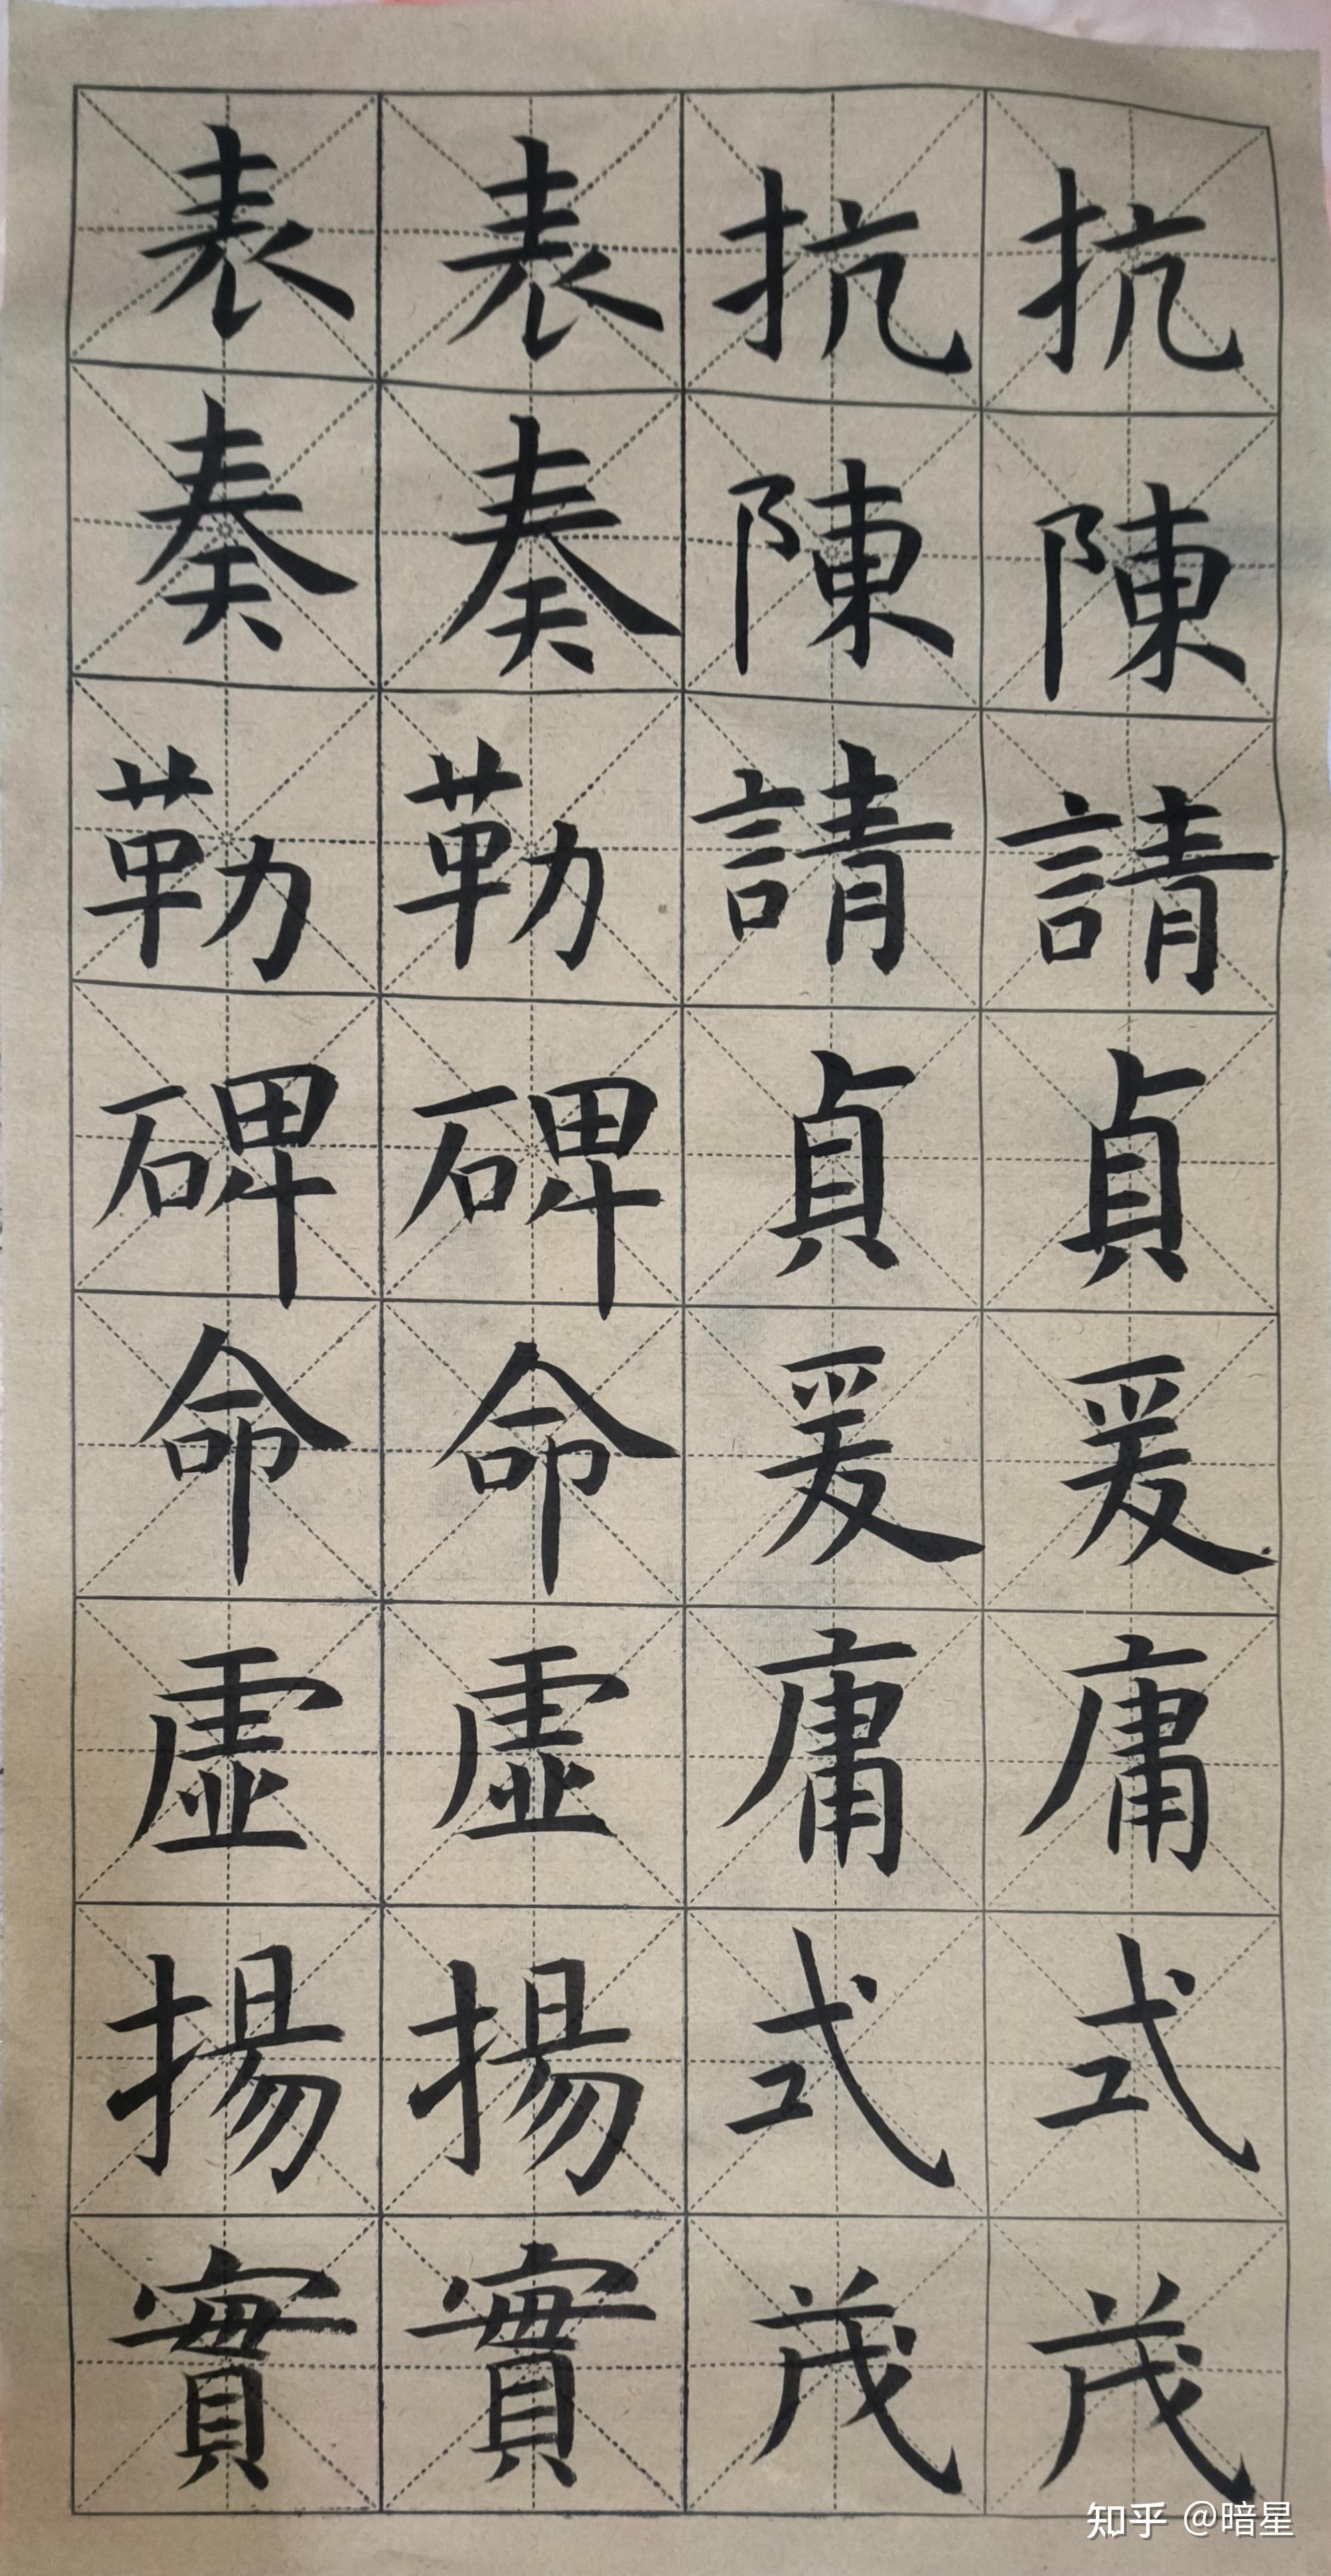 抗陳請貞爰庸式茂
抗陳請貞爰庸式茂
表奏勒碑命虚揚實
表奏勒碑命虚揚實
知乎 @暗星